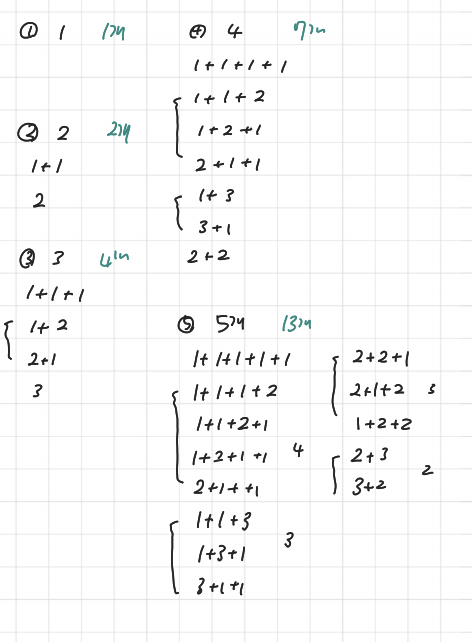 ① 1 1개
② 2 2개
1+1
2
③ 3 4개
1+1+1
1+2
2+1
3
④ 4 7개
1+1+1+1
1+1+2
1+2+1
2+1+1
1+3
3+1
2+2
⑤ 5개 13개
1+1+1+1+1
1+1+1+2
1+1+2+1
1+2+1+1 4
2+1+1+1
1+1+3
1+3+1 3
3+1+1
2+2+1
2+1+2 3
1+2+2
2+3
3+2 2